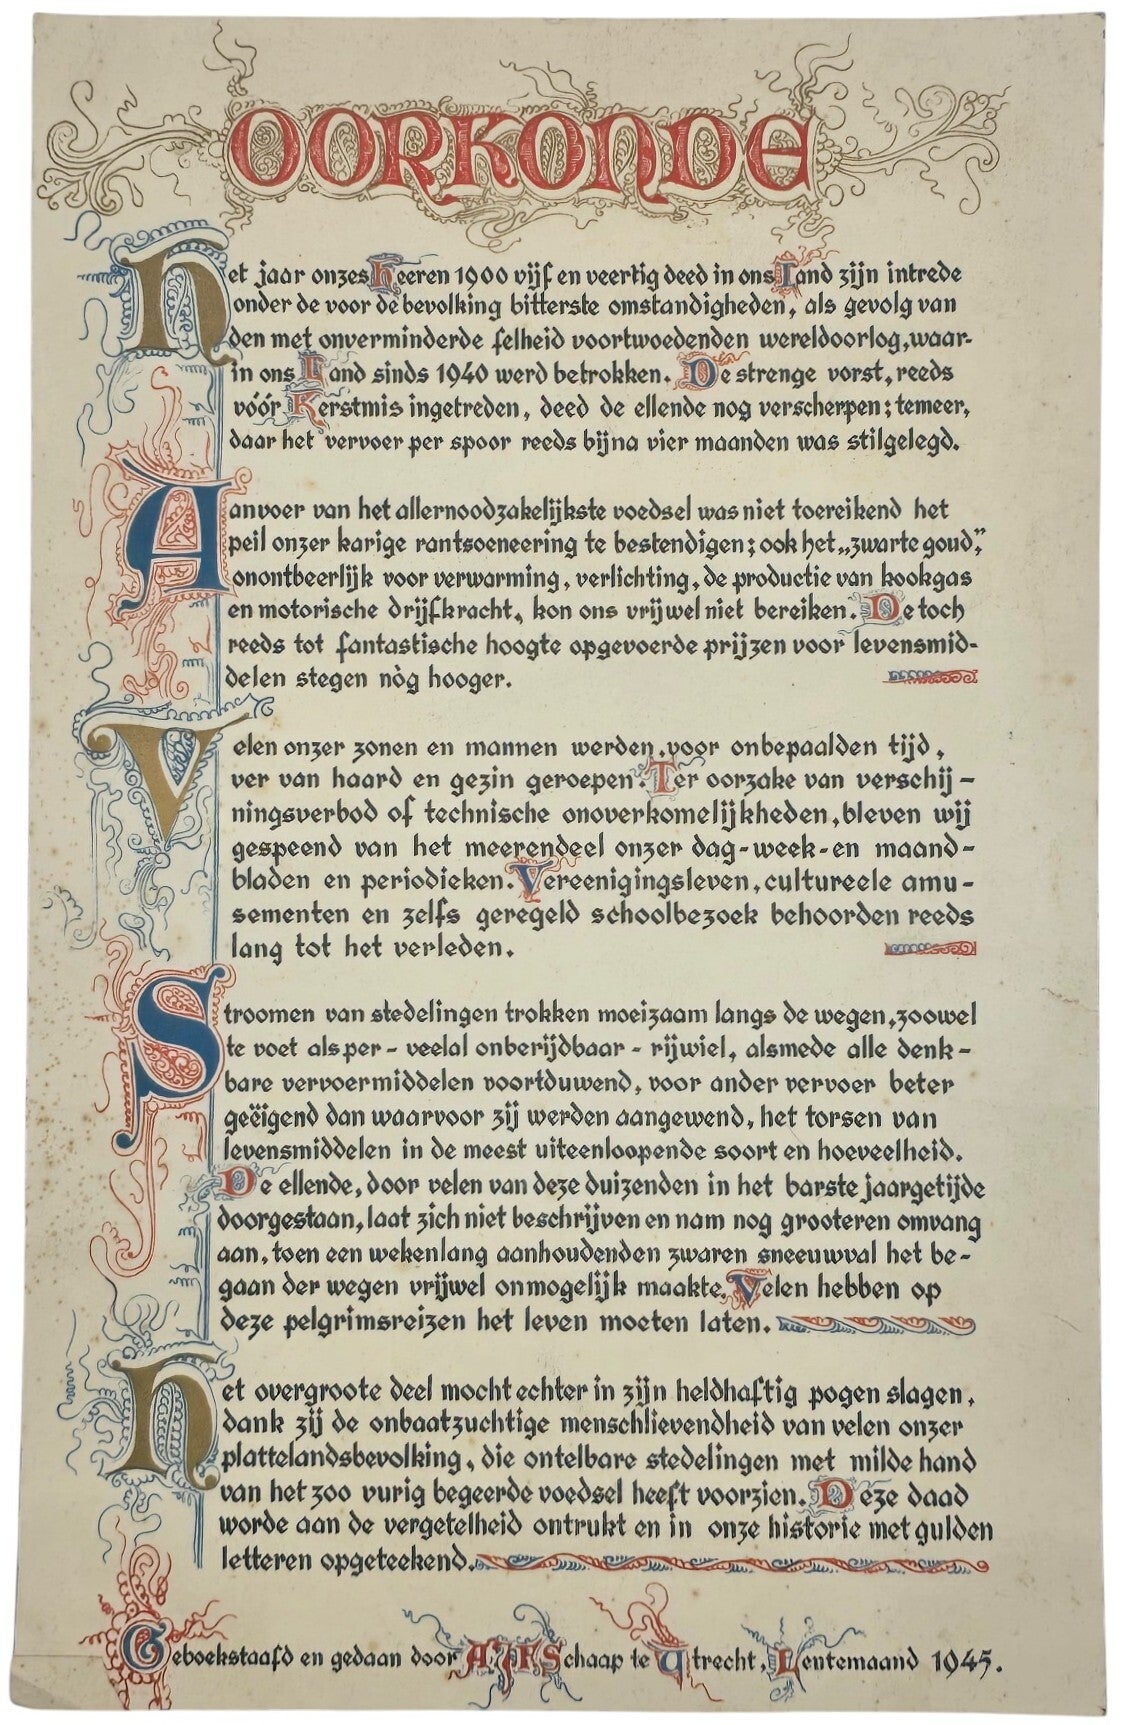 OORKONDE
Het jaar onzes Heeren 1900 vijf en veertig deed in ons Land zijn intrede
onder de voor de bevolking bitterste omstandigheden, als gevolg van
den met onverminderde felheid voortwoedenden wereldoorlog, waar-
in ons Land sinds 1940 werd betrokken. De strenge vorst, reeds
vóór Kerstmis ingetreden, deed de ellende nog verscherpen; temeer,
daar het vervoer per spoor reeds bijna vier maanden was stilgelegd.
Aanvoer van het allernoodzakelijkste voedsel was niet toereikend het
peil onzer karige rantsoeneering te bestendigen; ook het „zwarte goud”,
onontbeerlijk voor verwarming, verlichting, de productie van kookgas
en motorische drijfkracht, kon ons vrijwel niet bereiken. De toch
reeds tot fantastische hoogte opgevoerde prijzen voor levensmid-
delen stegen nòg hooger.
Velen onzer zonen en mannen werden, voor onbepaalden tijd,
ver van haard en gezin geroepen. Ter oorzake van verschij-
ningsverbod of technische onoverkomelijkheden, bleven wij
gespeend van het meerendeel onzer dag-week-en maand-
bladen en periodieken. Vereenigingsleven, cultureele amu-
sementen en zelfs geregeld schoolbezoek behoorden reeds
lang tot het verleden.
Stroomen van stedelingen trokken moeizaam langs de wegen, zoowel
te voet als per - veelal onberijdbaar - rijwiel, alsmede alle denk-
bare vervoermiddelen voortduwend, voor ander vervoer beter
geëigend dan waarvoor zij werden aangewend, het torsen van
levensmiddelen in de meest uiteenloopende soort en hoeveelheid.
De ellende, door velen van deze duizenden in het barste jaargetijde
doorgestaan, laat zich niet beschrijven en nam nog grooteren omvang
aan, toen een wekenlang aanhoudenden zwaren sneeuwval het be-
gaan der wegen vrijwel onmogelijk maakte. Velen hebben op
deze pelgrimsreizen het leven moeten laten.
Het overgroote deel mocht echter in zijn heldhaftig pogen slagen,
dank zij de onbaatzuchtige menschlievendheid van velen onzer
plattelandsbevolking, die ontelbare stedelingen met milde hand
van het zoo vurig begeerde voedsel heeft voorzien. Deze daad
worde aan de vergetelheid ontrukt en in onze historie met gulden
letteren opgeteekend.
Geboekstaafd en gedaan door A J F Schaap te Utrecht, Lentemaand 1945.